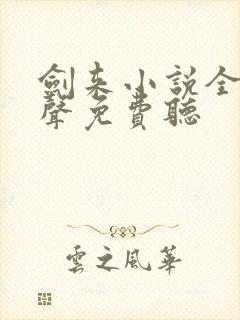 劍来小說全
聲免費聽
雲之風華